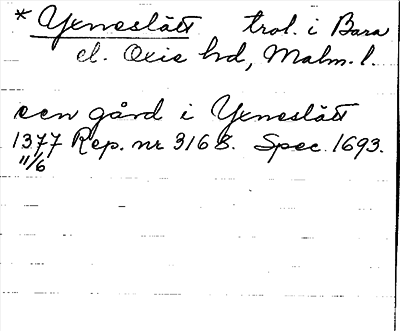 * Yxneslätt trol. i Bara
el. Oxie hd, Malm. l.
een gård i Yxneslätt
1377 Rep. nr 3168. Spec. 1693.
11/6